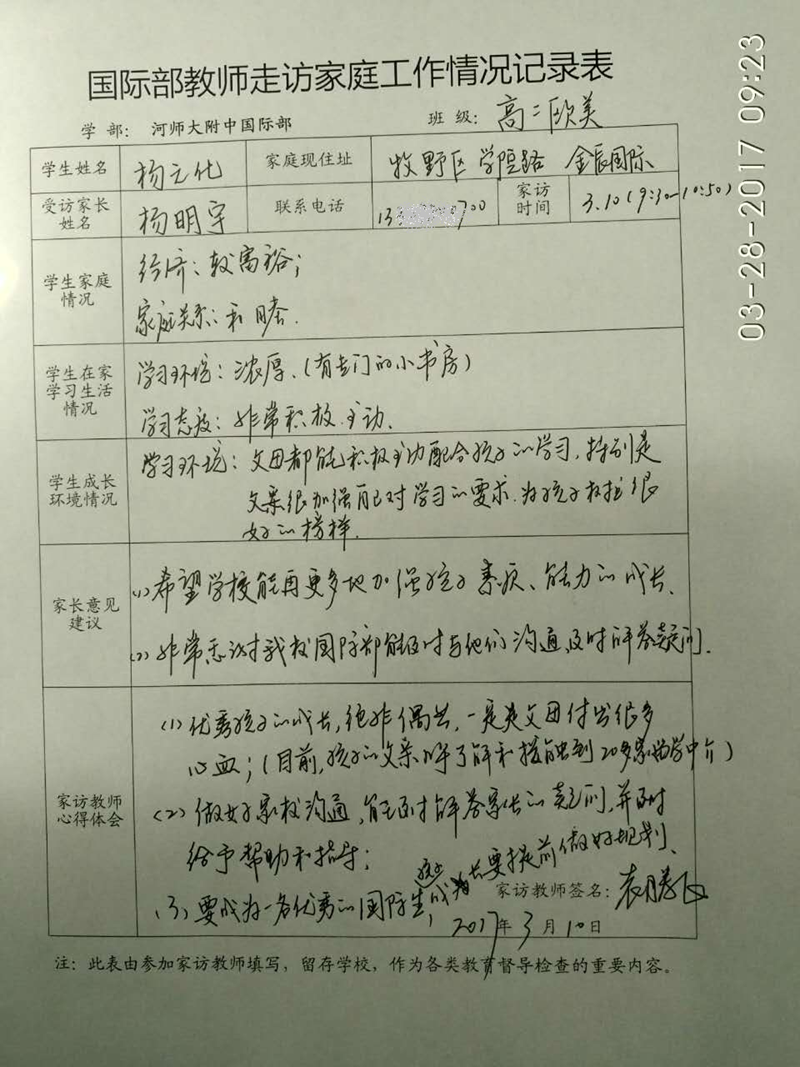 国际部教师走访家庭工作情况记录表
学 部: 河师大附中国际部 班 级: 高二欧美
学生姓名 杨元化 家庭现住址 牧野区 学院路 金辰国际
受访家长姓名 杨明宇 联系电话 13 0700 家访时间 3.10(9:30-10:50)
学生家庭情况
经济:较富裕;
家庭关系:和睦.
学生在家学习生活情况
学习环境:浓厚.(有专门的小书房)
学习态度:非常积极.主动.
学生成长环境情况
学习环境:父母都能积极主动配合孩子的学习,特别是
父亲很加强自己对学习的要求.为孩子树拉很
好的榜样.
家长意见建议
(1)希望学校能再更多地加强孩子素质、能力的成长.
(2)非常感谢我校国际部能及时与他们沟通,及时解答疑问.
家访教师心得体会
(1)优秀孩子的成长,绝非偶然,一定是父母付出很多
心血;(目前,孩子的父亲了解和接触到20多家留学中介)
(2)做好家校沟通,能及时解答家长的疑问,并及时
给予帮助和指导;
(3)要成为一名优秀的国际生,成长要提前做好规划.
家访教师签名:袁腾飞
2017年3月10日
注:此表由参加家访教师填写,留存学校,作为各类教育督导检查的重要内容。
03-28-2017 09:23